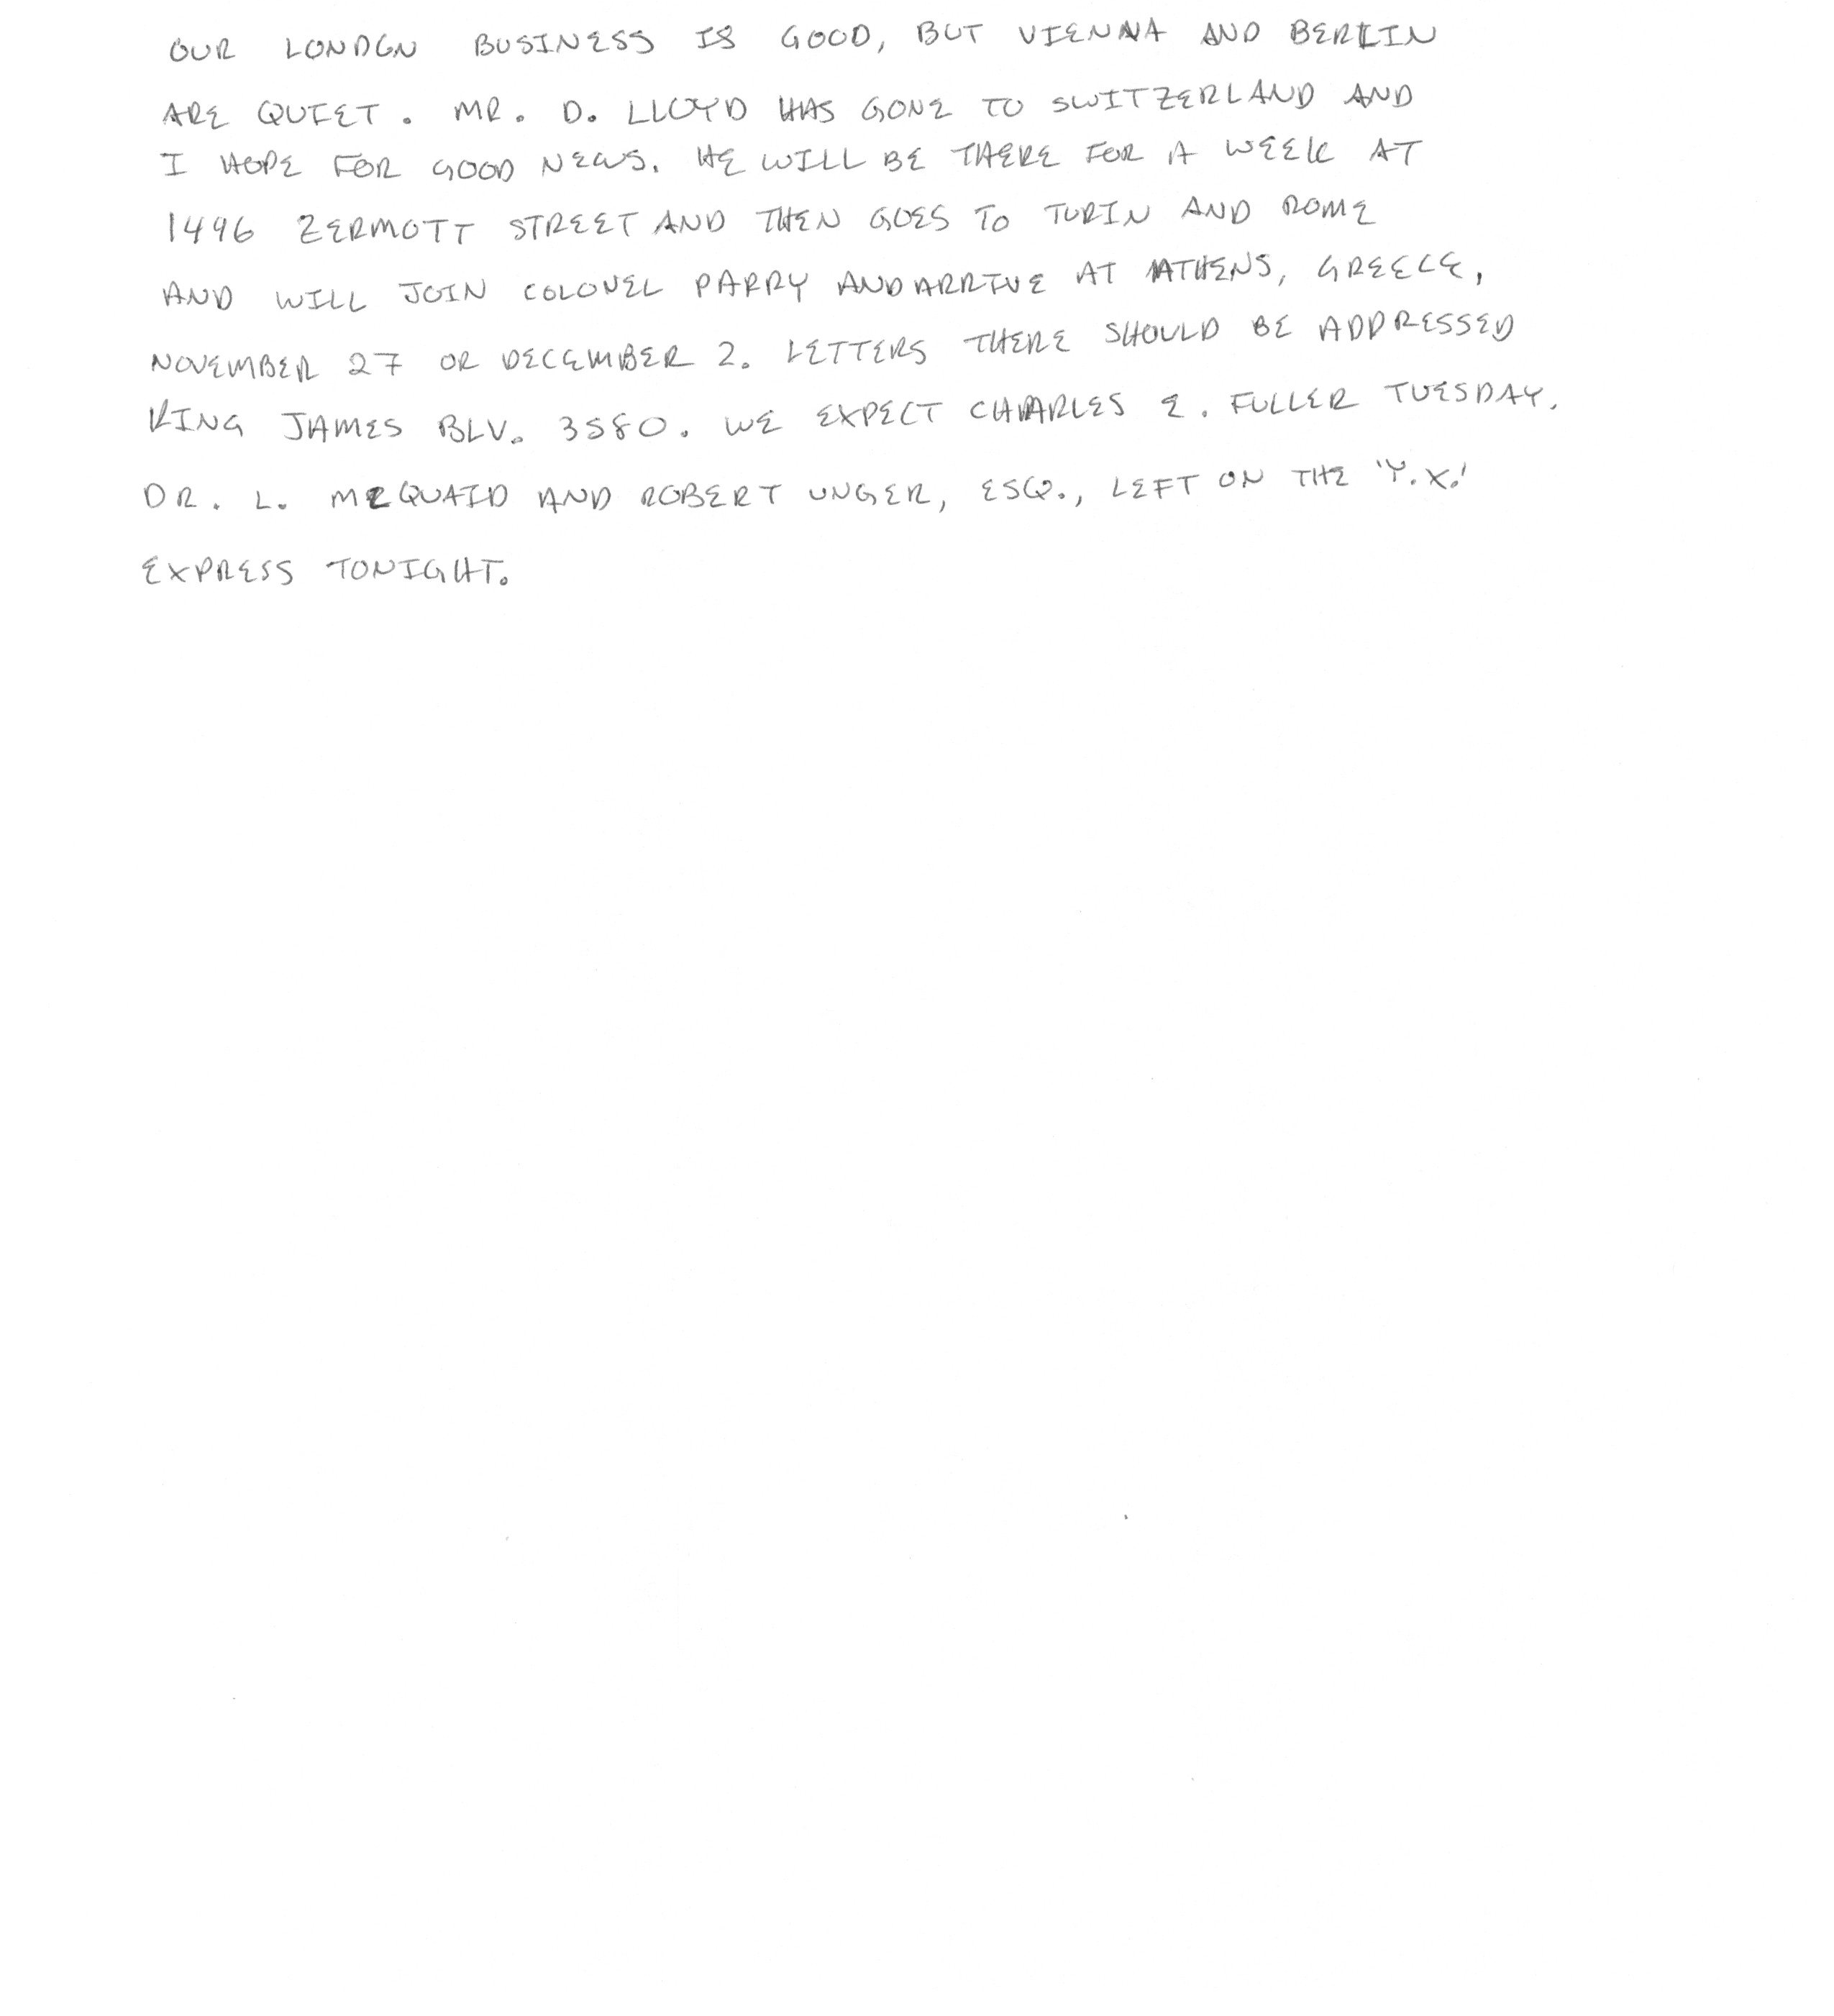 OUR LONDON BUSINESS IS GOOD, BUT VIENNA AND BERLIN
ARE QUIET. MR. D. LLOYD HAS GONE TO SWITZERLAND AND
I HOPE FOR GOOD NEWS. HE WILL BE THERE FOR A WEEK AT
1496 ZERMOTT STREET AND THEN GOES TO TURIN AND ROME
AND WILL JOIN COLONEL PARRY AND ARRIVE AT ATHENS, GREECE,
NOVEMBER 27 OR DECEMBER 2. LETTERS THERE SHOULD BE ADDRESSED
KING JAMES BLV. 3580. WE EXPECT CHARLES E. FULLER TUESDAY.
DR. L. MCQUAID AND ROBERT UNGER, ESQ., LEFT ON THE 'Y.X.'
EXPRESS TONIGHT.